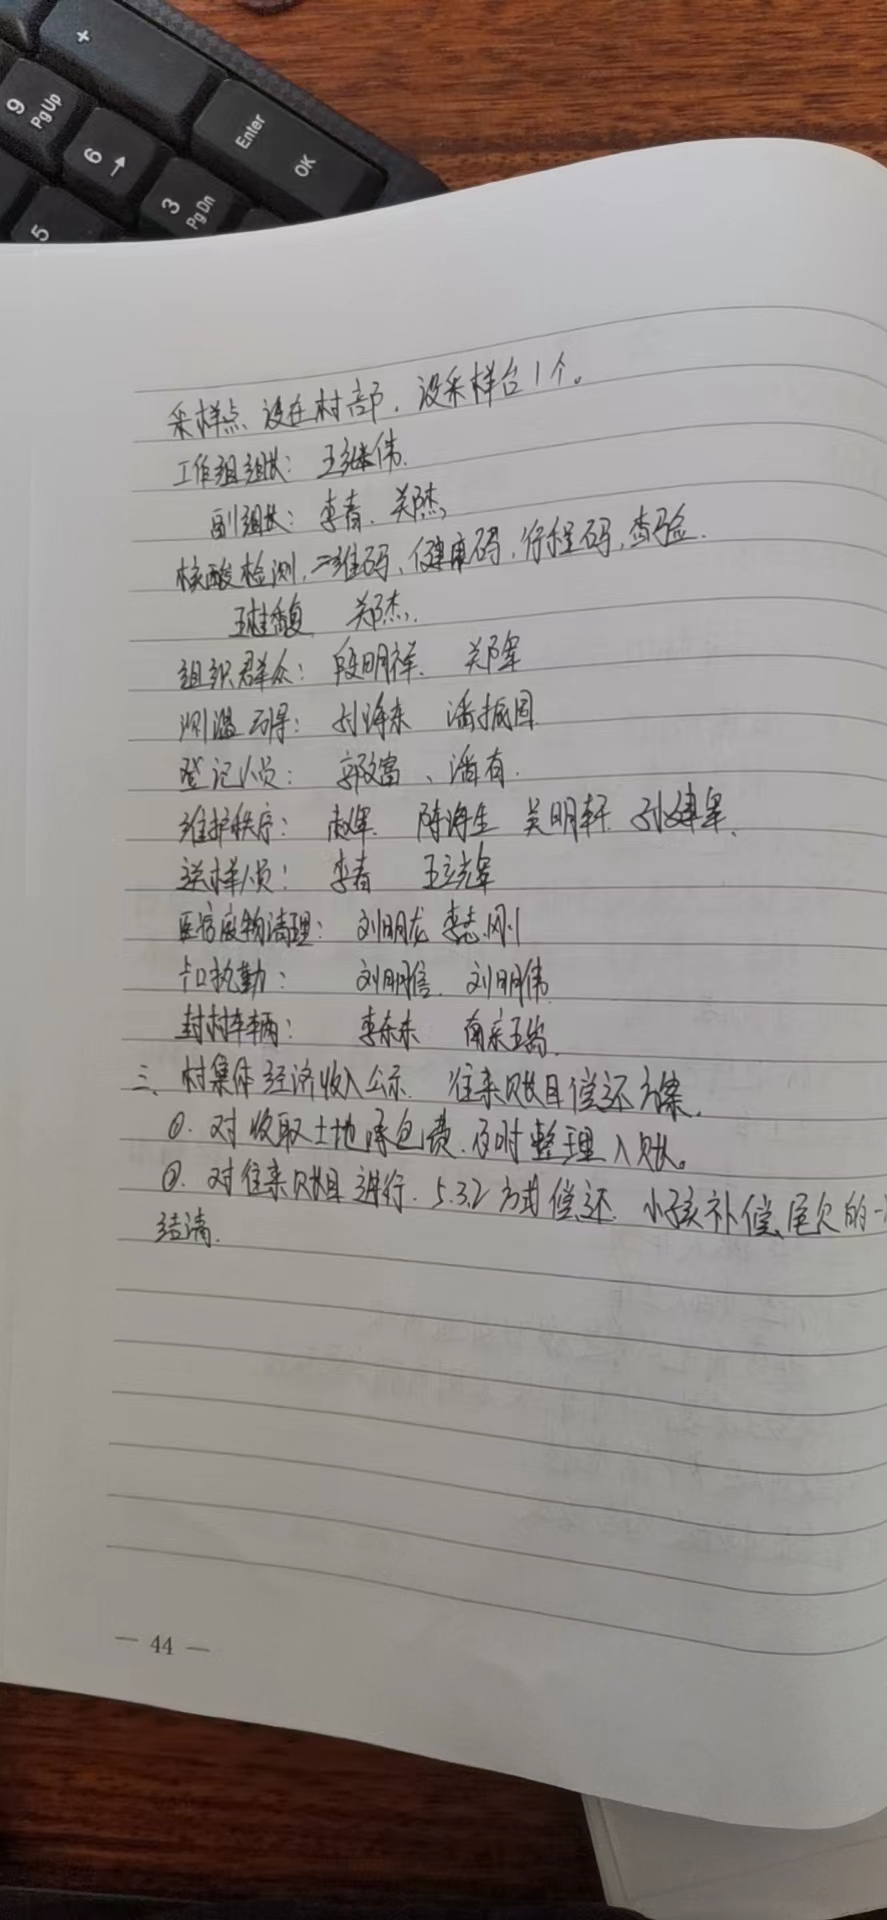 +
9 PgUp
Enter
OK
6 →
3 PgDn
5
采样点设在村部，设采样台1个。
工作组组长：王继伟.
副组长：李春、郑杰
核酸检测，二维码、健康码，行程码，查验.
郑杰.
组织群众：段明祥. 郑军
测温 刘海东 潘振国
登记人员：郭文富、潘有.
维护秩序：赵军. 陈海生 吴明轩 孙建军.
送样人员：李春 王立辉
医疗废物清理：刘明龙 李志刚
卡口执勤：刘明信. 刘明伟
封村车辆：李东东
三、村集体经济收入公示. 往来账目偿还方案.
①. 对收取土地承包费.及时整理入账。
②. 对往来账目进行. 5.3.2方式偿还. 补偿、尾欠的一
结清.
— 44 —